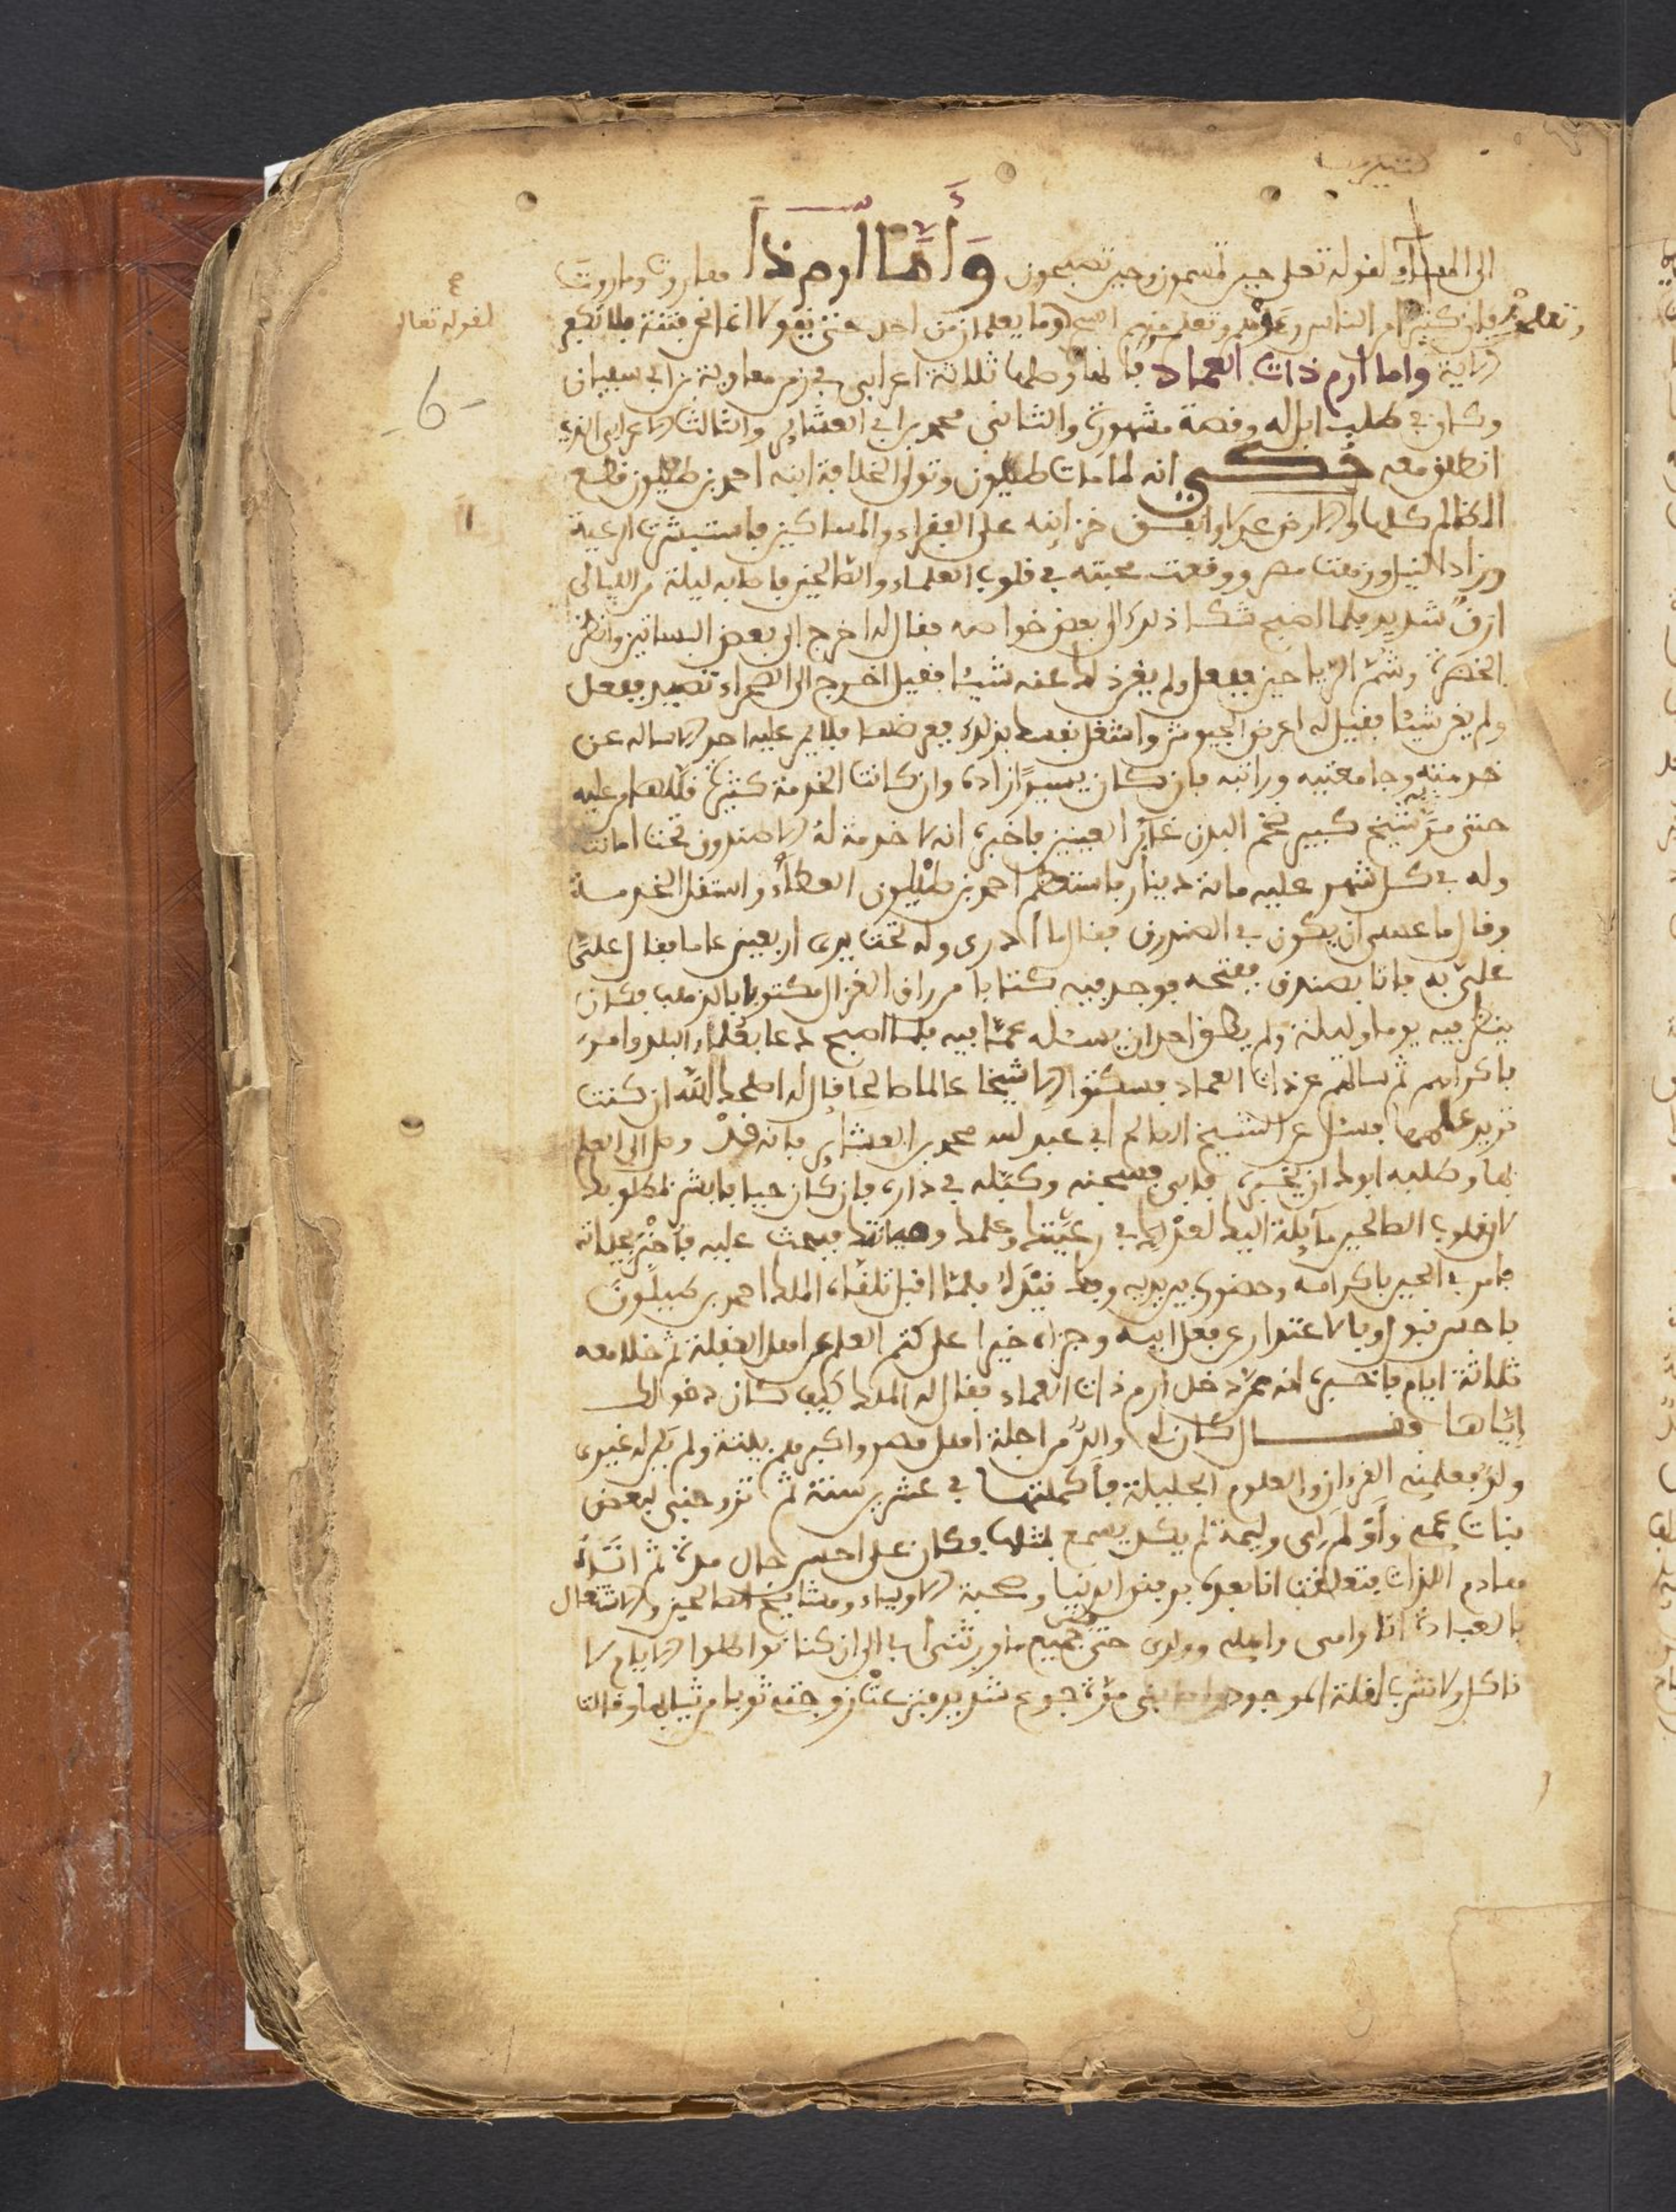 الى المساء لقوله تعلى حين تمسون وحين تصبحون وَأَمَّا ارم ذا هاروت وماروت
لقوله تعالى
فان كثيرا من الناس وتعلم منهم السحر وما يعلمان من احد حتى يقولا انما نحن فتنة فلا تكفر
الاية واما ارم ذات العماد فالها وصلها ثلاثة اعرابي في زمن معاوية بن ابي سفيان
6
وكان في طلب ابل له وقصة مشهورة والثاني محمد بن ابي العشاير والثالث الاعرابي الذي
انطلق معه حُكي انه لما مات طيلون وتولى الخلافة ابنه احمد بن طيلون قطع
المظالم كلها والارض عدلا وانفق خزاينه على الفقراء والمساكين فاستبشرت الرعية
وزاد النيل وزينت مصر ووقعت محبته في قلوب العلماء والصالحين فاصابه ليلة من الليالي
ارق شديد فلما اصبح شكا ذلك الى بعض خواصه فقال له اخرج الى بعض البساتين وانظر
الخضرة وشم الرياحين ففعل ولم يغن ذلك عنه شيئا فقيل اخرج الى الصحراء تصيد ففعل
ولم يغن شيئا فقيل له اعرض الجيوش واشغل نفسك بذلك فعرضها فلا يمر عليه احد الا ساله عن
خدمته وجامعتيه وراتبه فان كان يسيرًا زاده وان كانت الخدمة كثيرة قللها عليه
حتى مرّ شيخ كبير نحم البدن غاير العينين فاخبره انه لا خدمة له الا صندوق تحت امانته
وله في كل شهر عليه ماية دينار فاستعظم احمد بن طيلون العطاء واستقل الخدمة
وقال ما عسى ان يكون في الصندوق فقال ما ادري وله تحت يدي اربعين عاما فقال عليّ
عليّ به فاتا بصندوق ففتحه فوجد فيه كتابا من رق الغزال مكتوبا بالذهب فكان
ينظر فيه يوما وليلة ولم يطق احد ان يسئله عمّا فيه فلما اصبح دعا بعلماء البلد وامر
باكرامهم ثم سالهم عن ذات العماد فسكتوا الا شيخا عالما صالحا قال له اصلحك الله ان كنت
تريد علمها فسئل عن الشيخ الصالح ابي عبد الله محمد بن العشاير فانه قدْ وصل الى العلم
بها وطلبه ابوك ان يخبره فابى فسجنه وكبّله في داره فان كان حيا فابشر بمطلوبك
لان قلوب الصالحين مآيلة اليك لعدلك في رعيّتك وعلمك وصيانتك فبعث عليه فأُخبر بحياته
فامر في الحين باكرامه وحضوره بين يديه وفك قيده فلمّا اقبل تلقّاه الملك احمد بن طيلون
باحسن قبول وبالاعتذار عن فعل ابيه وجزاه خيرا على كتم العلم عن اهل الغفلة ثم خلا معه
ثلاثة ايام فاخبره انه ممّن دخل ارم ذات العماد فقال له الملك كيف كان دخولك
ايّاها وقال كان لي والدٌ من اجلة اهل مصر واكبرهم بيتة ولم يكن له غيري
ولدٌ فعلمنِي القرءان والعلوم الجليلة فأكملتها في عشرين سنة ثم تزوجني لبعض
بنات عمّي وأوْلم لي وليمة لم يكن يسمع بمثلها فكان على احسن حال مدة ثم اتاه
هادم اللذات فتعلقت انا بعده برفض الدنيا وصحبة الاولياء ومشايخ الصالحين والاشتغال
بالعبادة انا وامى واهلي وولدي حتى جميع ما ورثتُ ابي الى ان كنا نواصلوا الايام لا
ناكل ولا نشرب لقلة الموجود واصابني مرة جوع شديد فنزعتْ زوجتي ثوبا من ثيابها وقالت